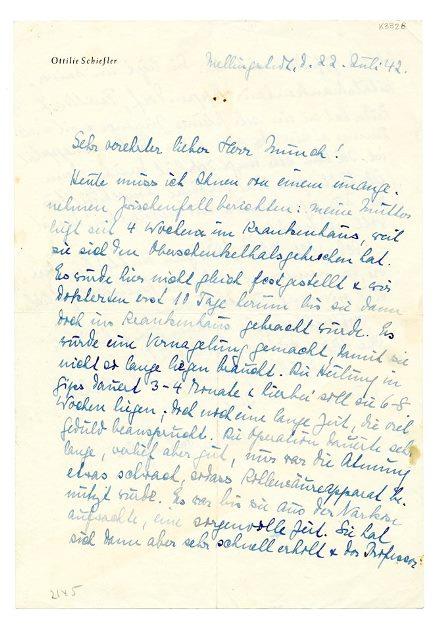 K3326
Ottilie Schiefler
Mellingstedt, d. 22. Juli 42.
Sehr verehrter lieber Herr Munch!
Heute muss ich Ihnen von einem unange-
nehmen Zwischenfall berichten: meine Mutter
liegt seit 4 Wochen im Krankenhaus, weil
sie sich den Oberschenkelhals gebrochen hat.
Es wurde hier nicht gleich festgestellt & wir
dokterten erst 10 Tage herum bis sie dann
doch ins Krankenhaus gebracht wurde. Es
wurde eine Vernagelung gemacht, damit sie
nicht so lange liegen braucht. Die Heilung in
Gips dauert 3-4 Monate & hierbei soll sie 6-8
Wochen liegen; doch noch eine lange Zeit, die viel
Geduld beansprucht. Die Operation dauerte sehr
lange, verlief aber gut, nur war die Atmung
etwas schwach, sodass be-
nützt wurde. Es war bis sie aus der Narkose
aufwachte, eine sorgenvolle Zeit. Sie hat
sich dann aber sehr schnell erholt & der Professor
2145